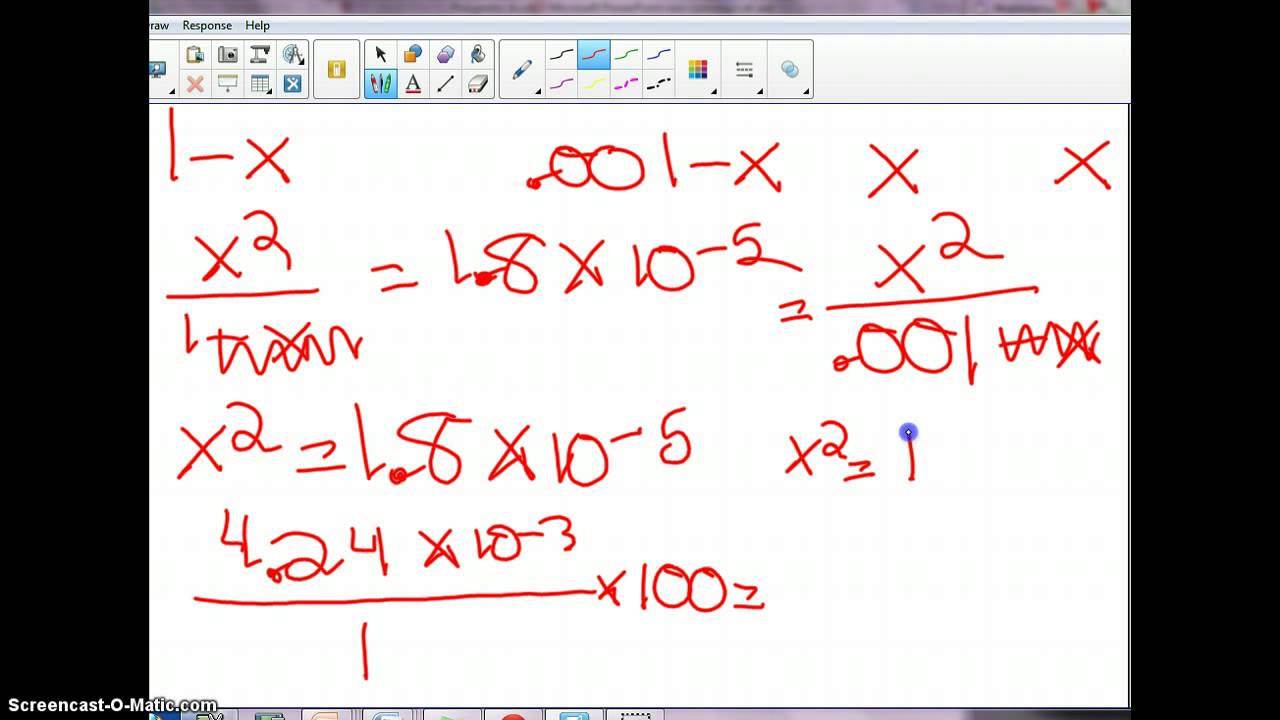 raw Response Help
1-x .001-x x x
x² = 1.8 x 10⁻⁵ = x²
1 .001
x² = 1.8 x 10⁻⁵ x² = 1
4.24 x 10⁻³ x 100 =
1
Screencast-O-Matic.com